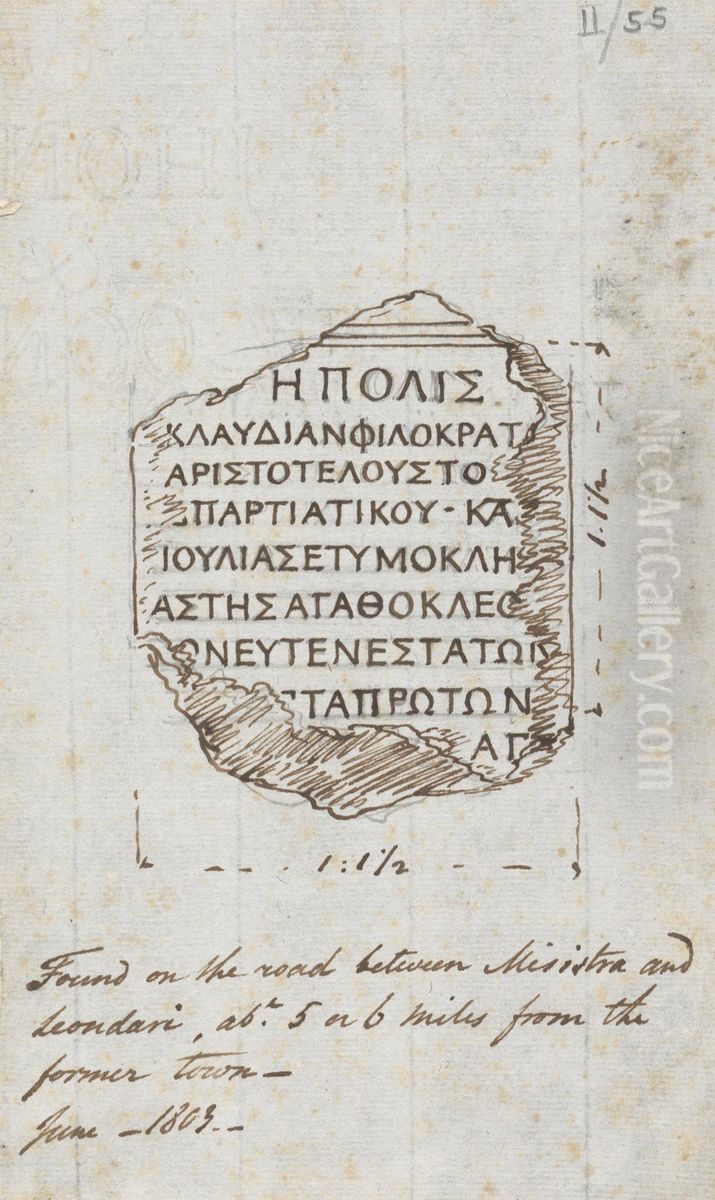 II/55
Η ΠΟΛΙΣ
ΚΛΑΥΔΙΑΝΦΙΛΟΚΡΑΤ
ΑΡΙΣΤΟΤΕΛΟΥΣΤΟ
ΣΠΑΡΤΙΑΤΙΚΟΥ-ΚΑ
ΙΟΥΛΙΑΣΕΤΥΜΟΚΛΗ
ΑΣΤΗΣΑΓΑΘΟΚΛΕΟ
ΟΝΕΥΓΕΝΕΣΤΑΤΩΝ
ΣΤΑΠΡΩΤΩΝ
ΑΓ
1.1/2
1:1 1/2
Found on the road between Misistra and
Leondari, abt 5 or 6 miles from the
former town—
June - 1803.-
NiceArtGallery.com